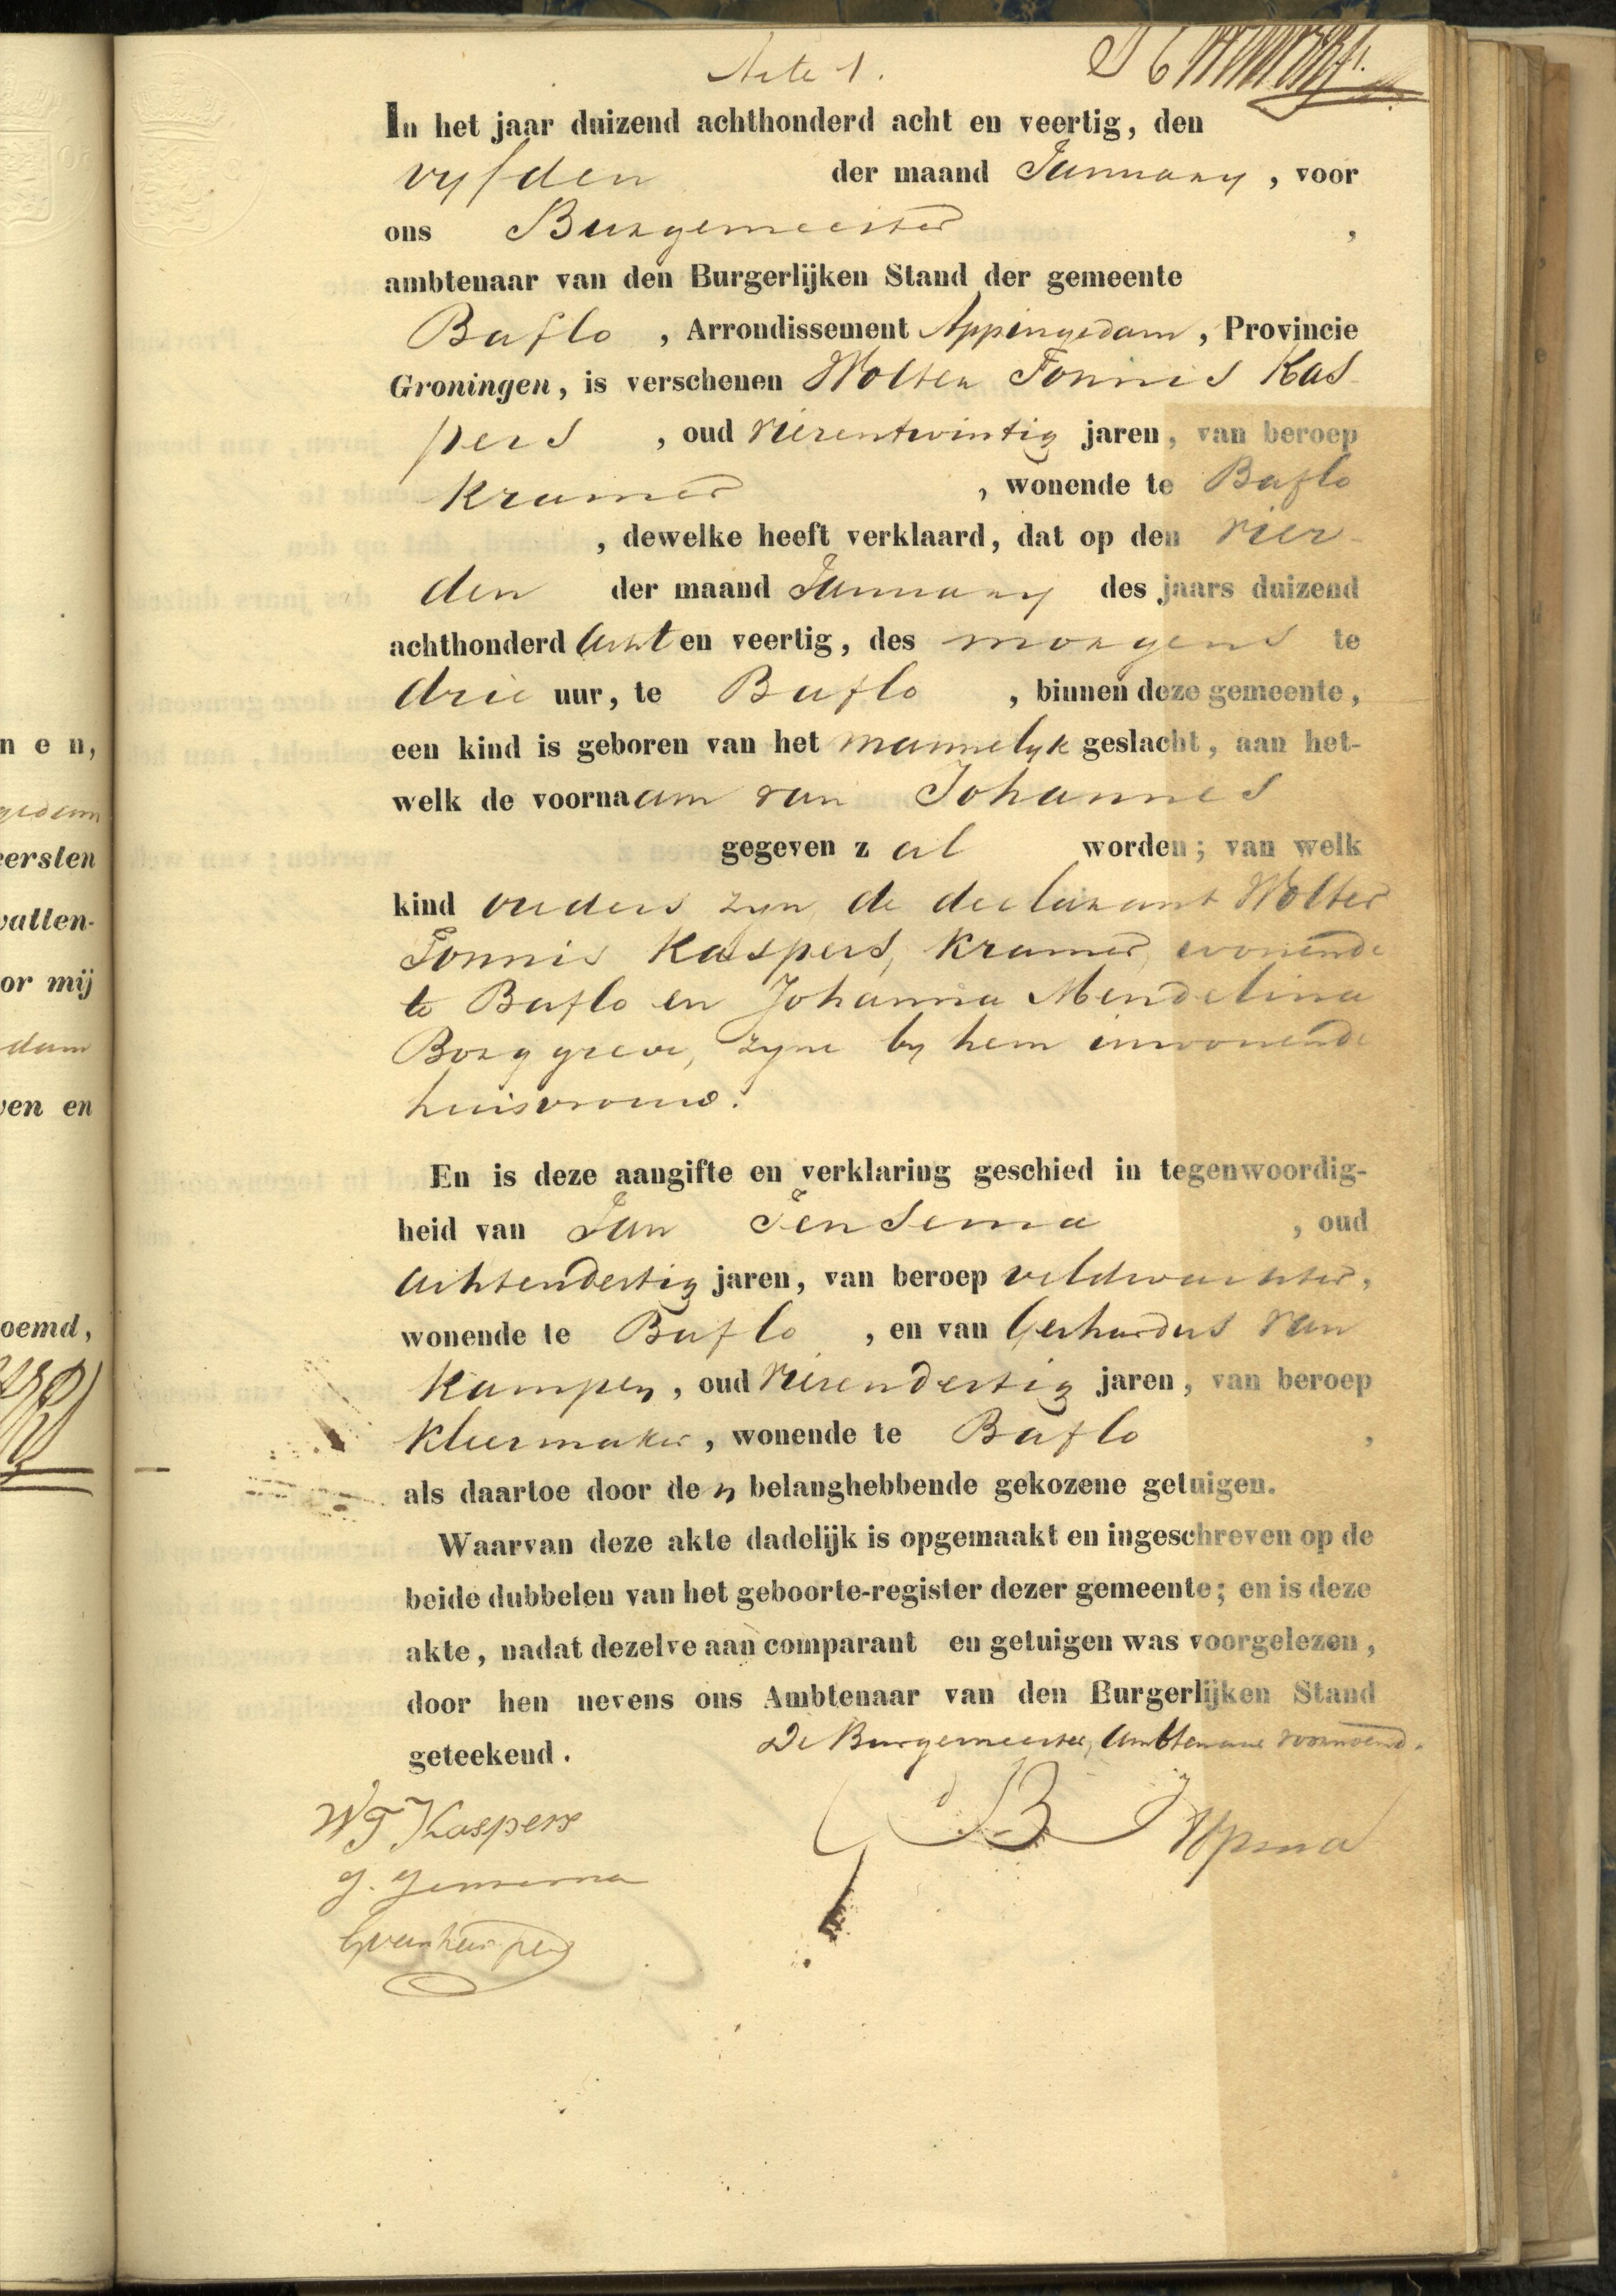 Acte 1.
In het jaar duizend achthonderd acht en veertig, den
vyfden der maand January, voor
ons Burgemeester ,
ambtenaar van den Burgerlijken Stand der gemeente
Baflo , Arrondissement Appingedam, Provincie
Groningen, is verschenen Wolter Tonnis Kas-
pers , oud vierentwintig jaren, van beroep
Kramer , wonende te Baflo
, dewelke heeft verklaard, dat op den vier-
den der maand January des jaars duizend
achthonderd Acht en veertig, des morgens te
drie uur, te Baflo , binnen deze gemeente,
een kind is geboren van het mannelyk geslacht, aan het-
welk de voornaam van Johannes
gegeven zal worden; van welk
kind ouders zyn de declarant Wolter
Tonnis Kaspers, Kramer, wonende
te Baflo en Johanna Mendelina
Borggreve, zyne by hem inwonende
huisvrouw.
En is deze aangifte en verklaring geschied in tegenwoordig-
heid van Jan Jensema , oud
Achtendertig jaren, van beroep veldwachter,
wonende te Baflo , en van Gerhardus van
Kampen, oud vierendertig jaren, van beroep
Kleermaker, wonende te Baflo ,
als daartoe door den belanghebbende gekozene getuigen.
Waarvan deze akte dadelijk is opgemaakt en ingeschreven op de
beide dubbelen van het geboorte-register dezer gemeente; en is deze
akte, nadat dezelve aan comparant en getuigen was voorgelezen,
door hen nevens ons Ambtenaar van den Burgerlijken Stand
geteekend. De Burgemeester, Ambtenaar voornoemd.
WT Kaspers
J. Jensema
G van Kampen
nen,
gedam
eersten
vatten-
or mij
dam
ven en
oemd,